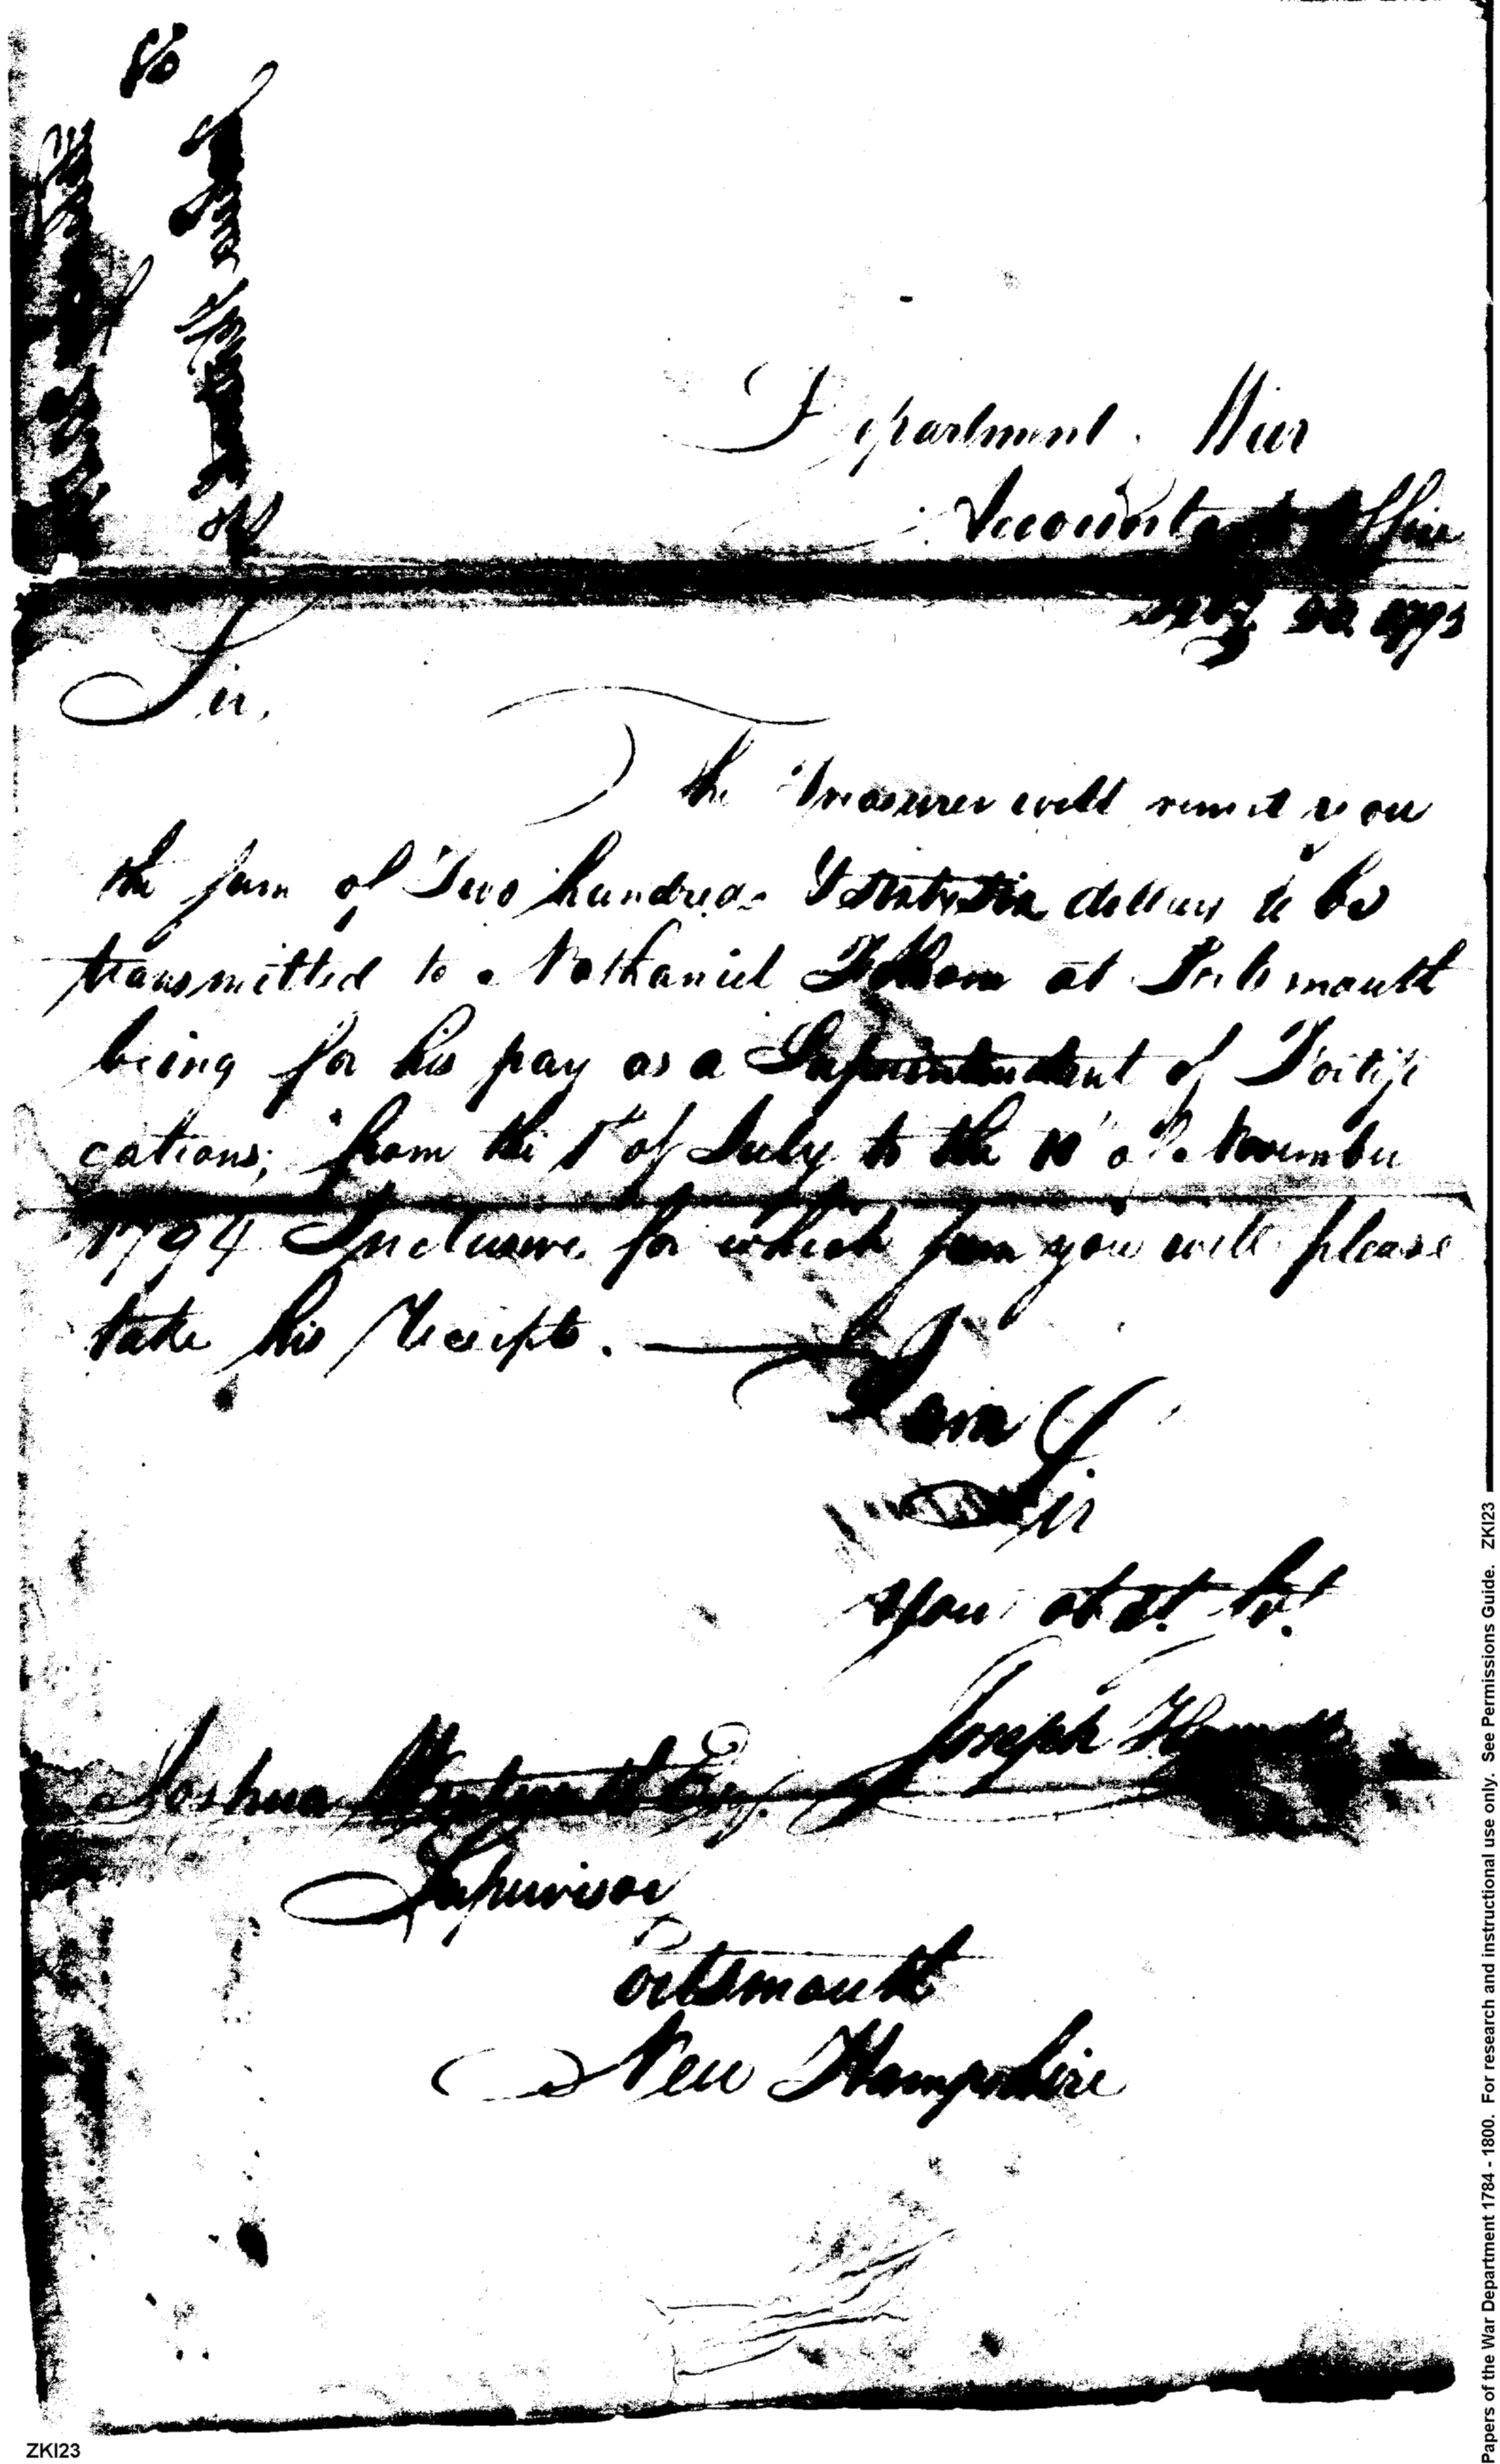 Department War
Accountants Office
1795
Sir,
The Treasurer will remit you
the sum of Two hundred & dollars to be
transmitted to Nathaniel Folsom at Portsmouth
being for his pay as a Superintendent of Fortifi
cations, from the 1st of July to the 10 of November
1794 Inclusive for which sum you will please
take his Receipts.
I am
Sir
Your obdt. Svt.
Joseph Howell
Joshua Wentworth Esqr.
Supervisor
Portsmouth
New Hampshire
Papers of the War Department 1784 - 1800. For research and instructional use only. See Permissions Guide. ZKI23
ZKI23